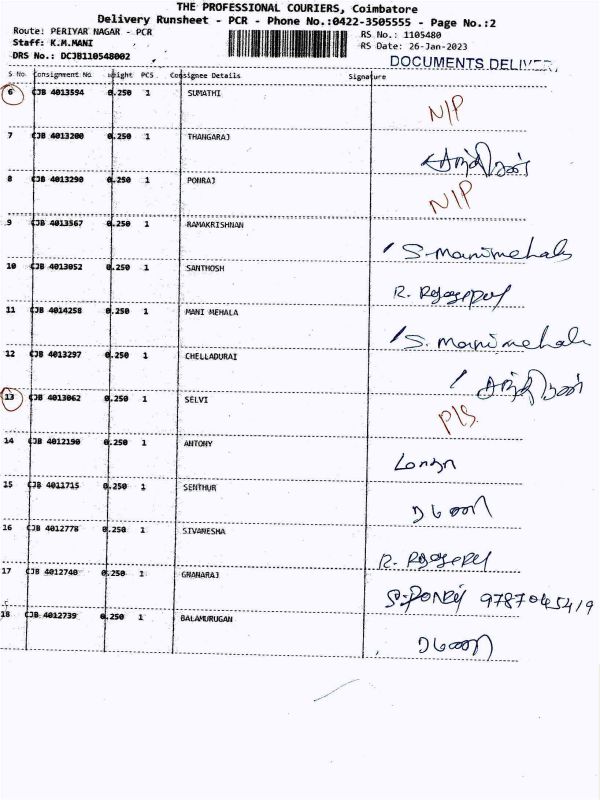 THE PROFESSIONAL COURIERS, Coimbatore
Delivery Runsheet - PCR - Phone No.:0422-3505555 - Page No.:2
Route: PERIYAR NAGAR - PCR
RS No.: 1105480
Staff: K.M.MANI
RS Date: 26-Jan-2023
DRS No.: DCJB110548002
DOCUMENTS DELIVER
S No. Consignment No Weight PCS Consignee Details Signature
6 CJB 4013594 0.250 1 SUMATHI N/P
7 CJB 4013200 0.250 1 THANGARAJ
8 CJB 4013290 0.250 1 PONRAJ N/P
9 CJB 4013567 0.250 1 RAMAKRISHNAN S. Manimehala
10 CJB 4013052 0.250 1 SANTHOSH
11 CJB 4014258 0.250 1 MANI MEHALA S. manimehala
12 CJB 4013297 0.250 1 CHELLADURAI
13 CJB 4013062 0.250 1 SELVI P/S.
14 CJB 4012190 0.250 1 ANTONY
15 CJB 4011715 0.250 1 SENTHUR
16 CJB 4012778 0.250 1 SIVANESHA
17 CJB 4012740 0.250 1 GNANARAJ 9787045419
18 CJB 4012739 0.250 1 BALAMURUGAN